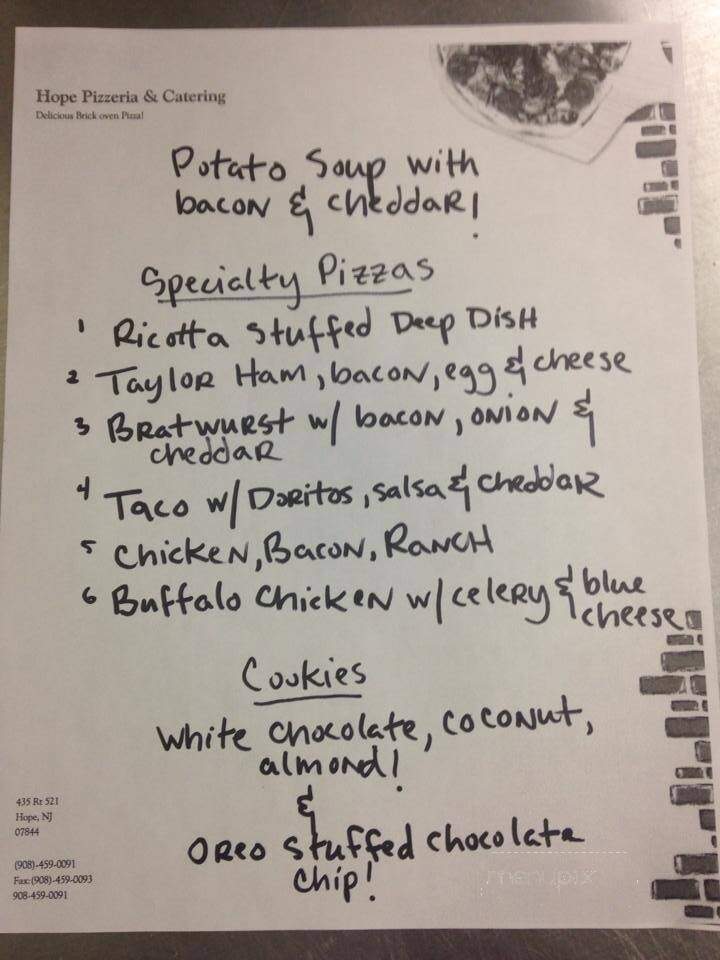 Hope Pizzeria & Catering
Delicious Brick oven Pizza!
Potato Soup with
bacon & cheddar!
Specialty Pizzas
1 Ricotta stuffed Deep Dish
2 Taylor Ham, bacon, egg & cheese
3 Bratwurst w/ bacon, onion &
cheddar
4 Taco w/ Doritos, salsa & cheddar
5 Chicken, Bacon, Ranch
6 Buffalo Chicken w/ celery & blue
cheese
Cookies
White chocolate, coconut,
almond!
&
Oreo stuffed chocolate
chip!
435 Rt 521
Hope, NJ
07844
(908)-459-0091
Fax: (908)-459-0093
908-459-0091
menupix